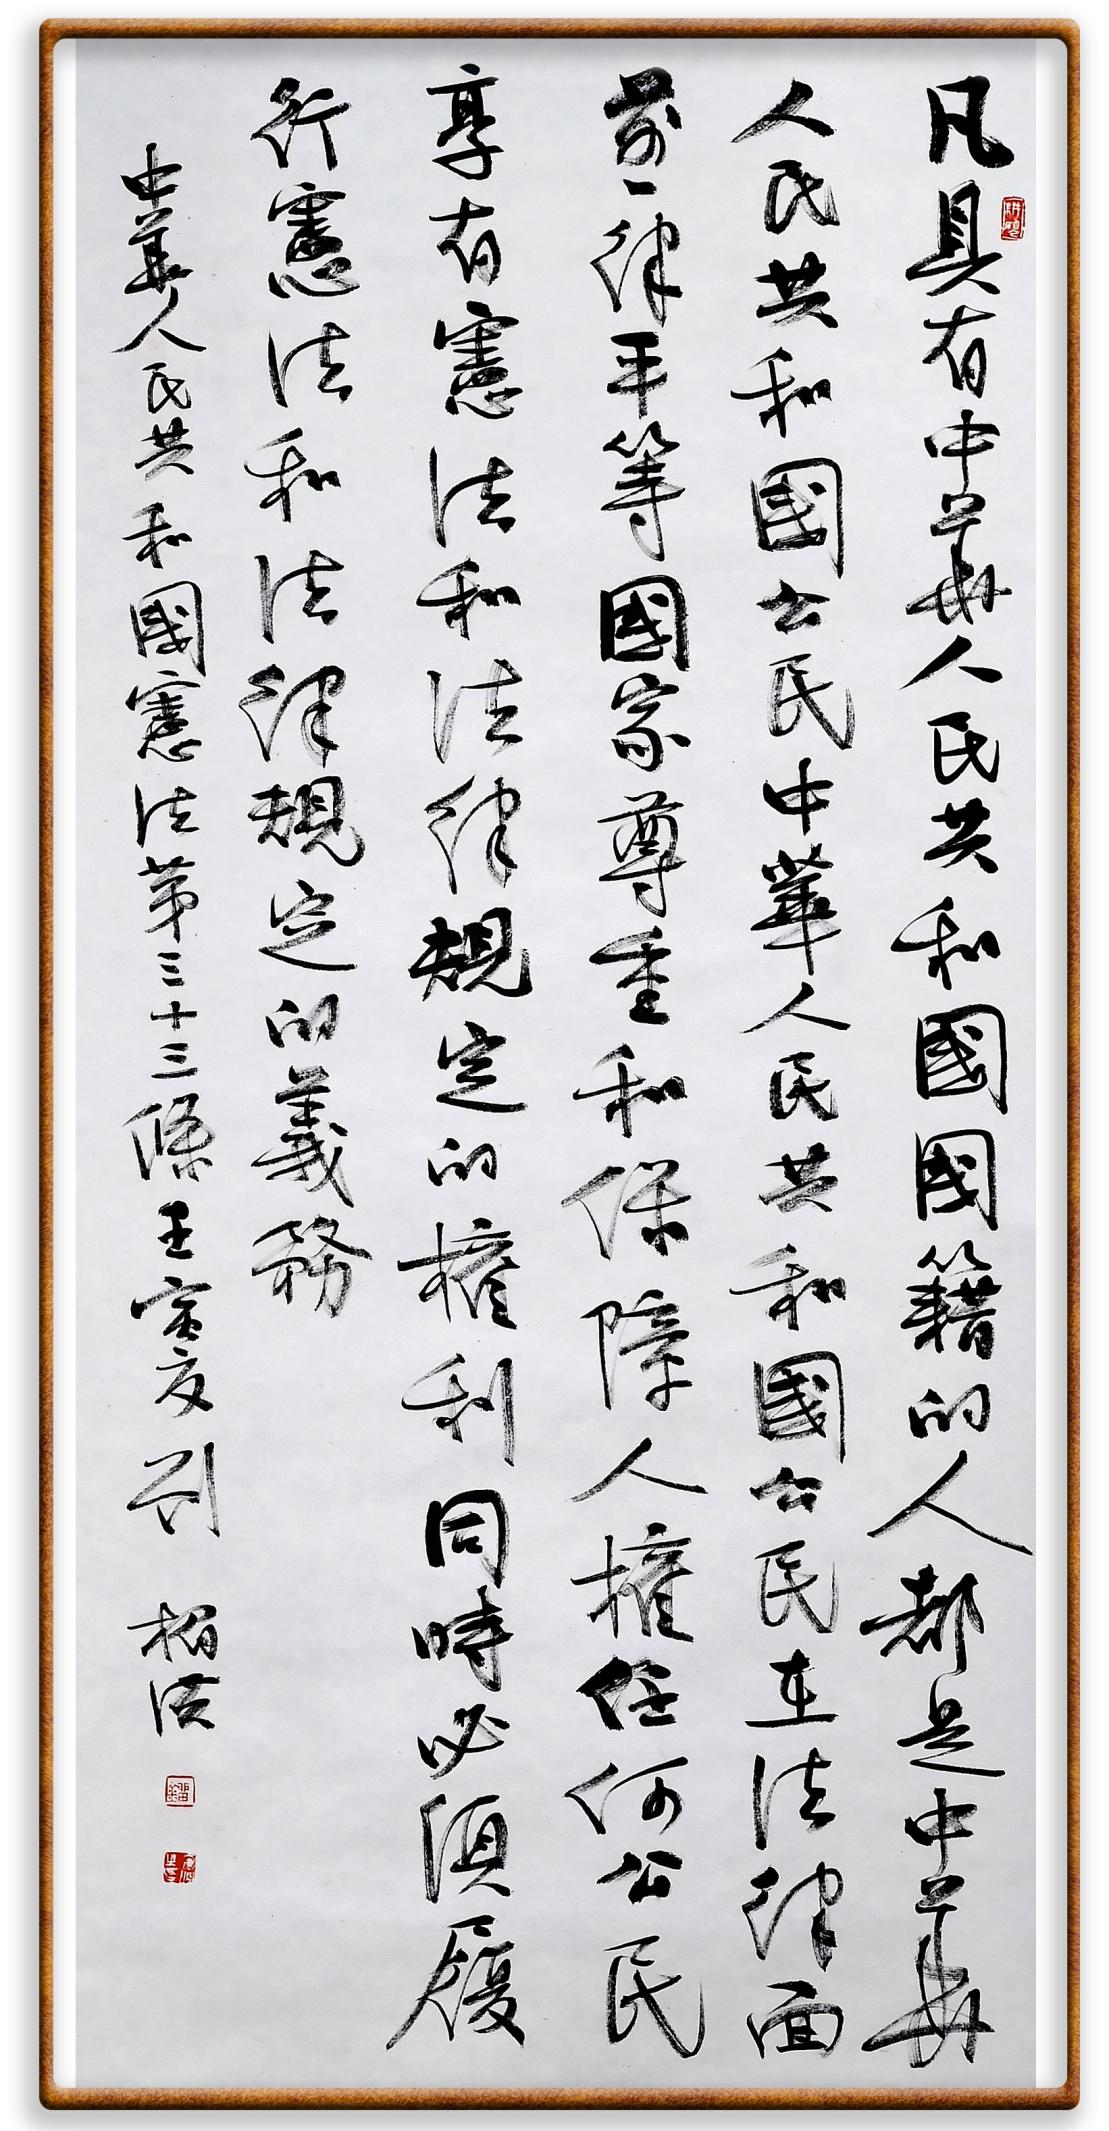 凡具有中華人民共和國國籍的人都是中華
人民共和國公民中華人民共和國公民在法律面
前一律平等國家尊重和保障人權任何公民
享有憲法和法律規定的權利同時必須履
行憲法和法律規定的義務
中華人民共和國憲法第三十三條壬寅夏